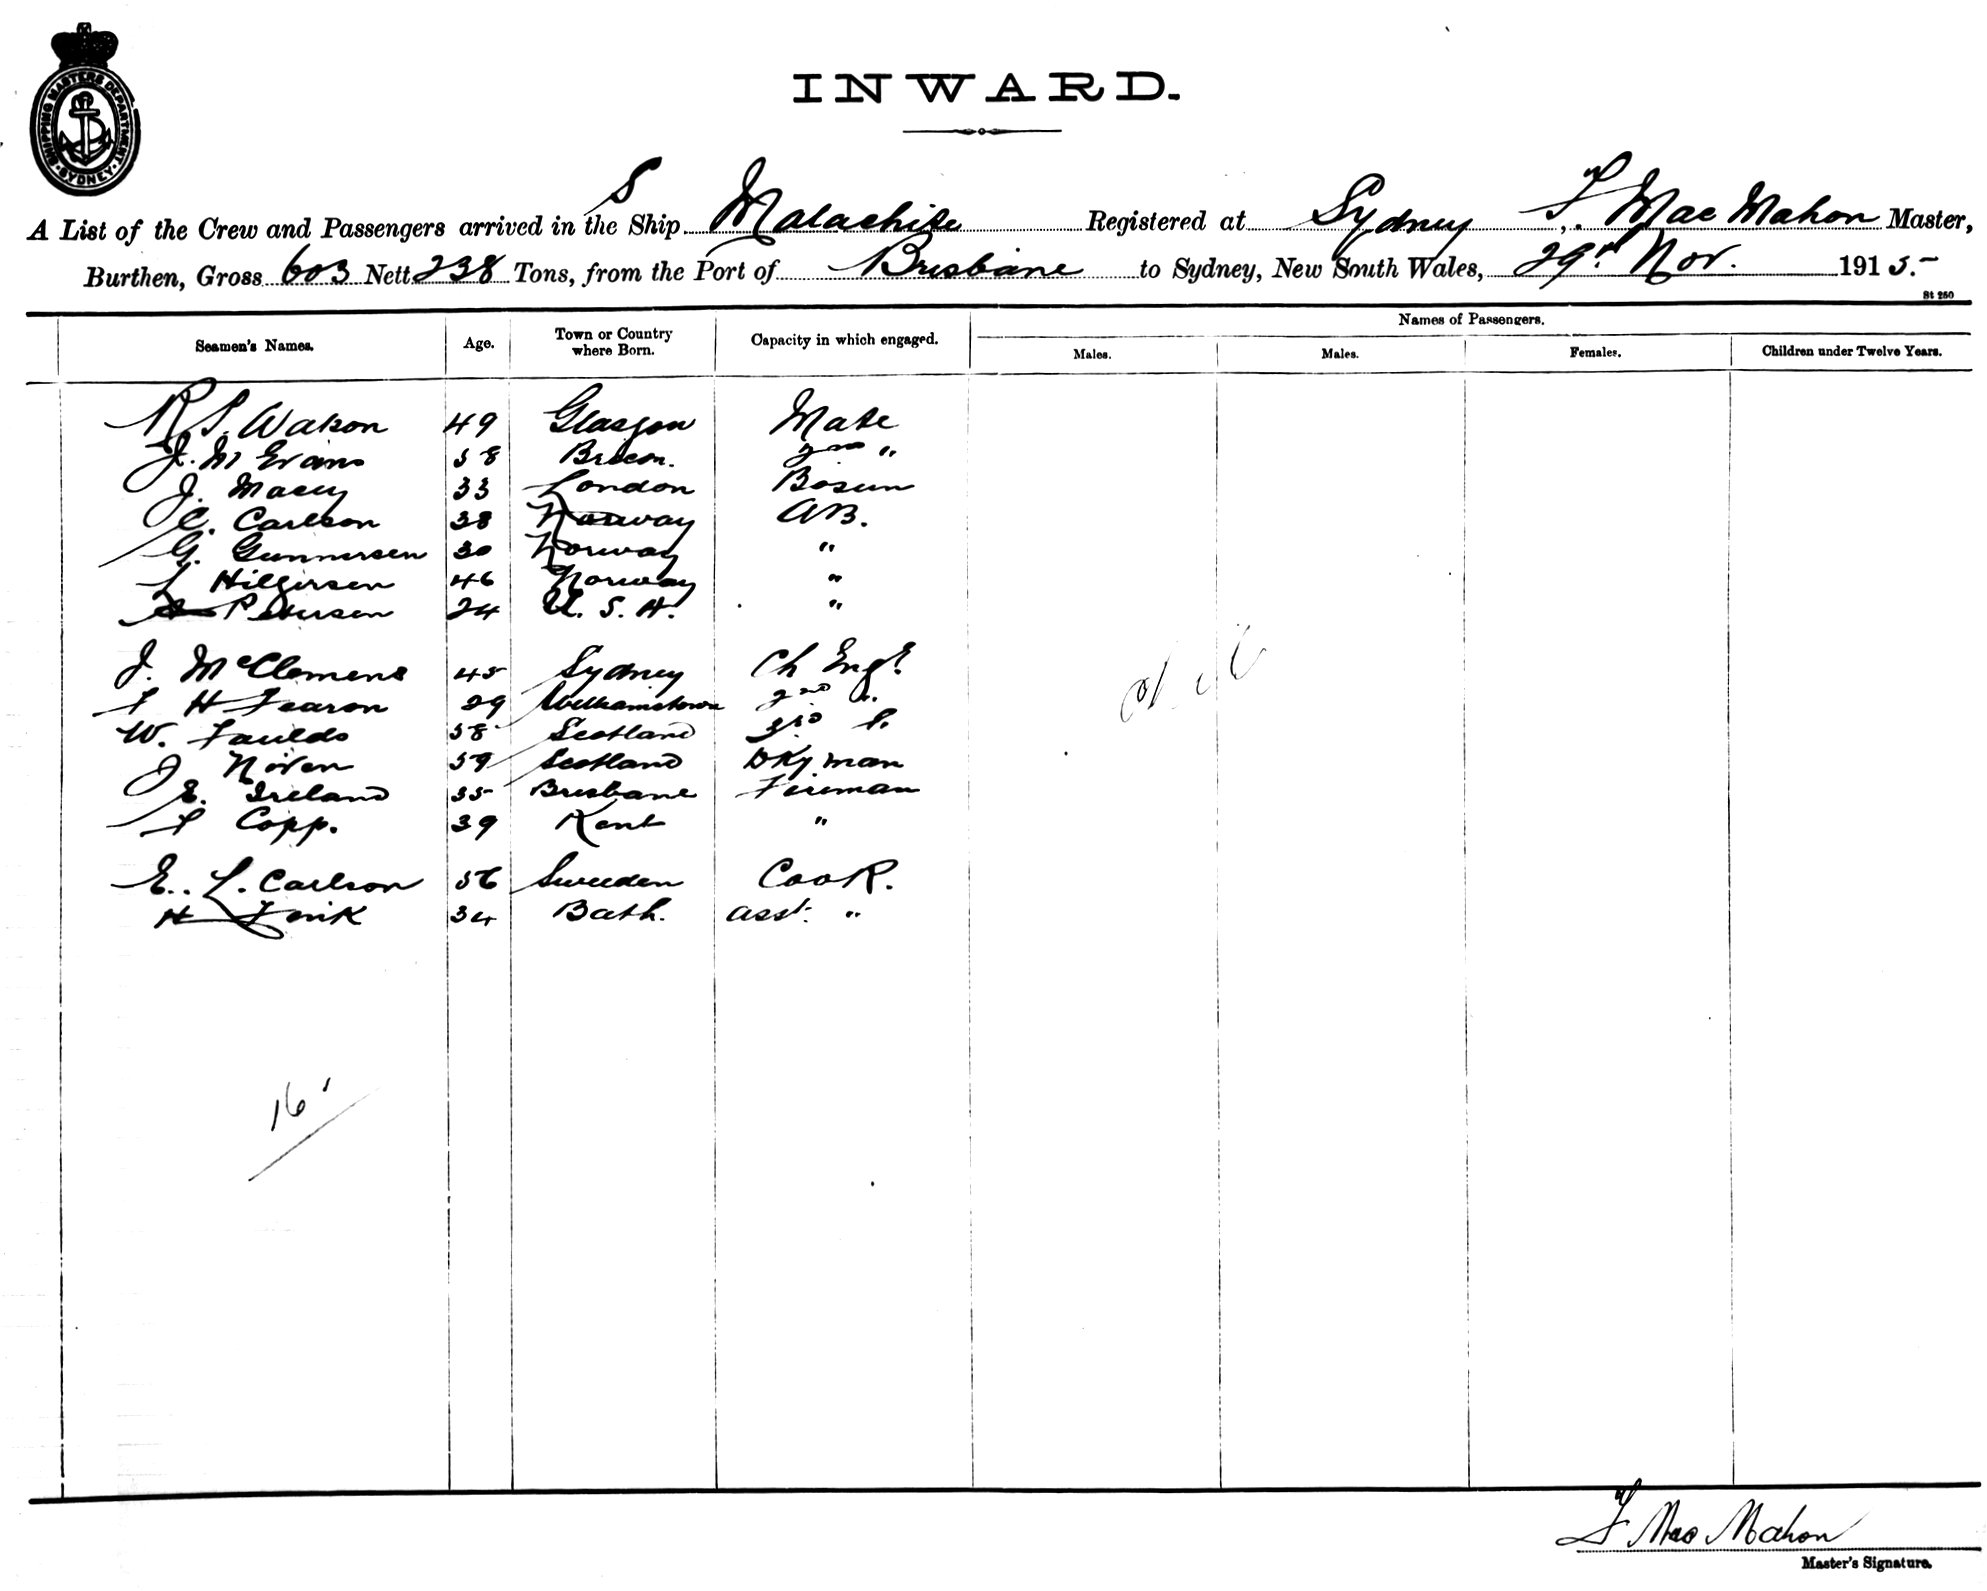 SHIPPING MASTERS DEPARTMENT
SYDNEY
INWARD.
A List of the Crew and Passengers arrived in the S Ship Malachite Registered at Sydney F. Mac Mahon Master,
Burthen, Gross 603 Nett 238 Tons, from the Port of Brisbane to Sydney, New South Wales, 29th Nov. 1915.
St 250
Seamen's Names. Age. Town or Country where Born. Capacity in which engaged. Names of Passengers.
Males. Males. Females. Children under Twelve Years.
R S. Watson 49 Glasgow Mate
J. M Evans 58 Brecon. 2nd "
J. Macey 33 London Bosun
C. Carlson 38 Norway AB.
G. Gunnersen 30 Norway "
Hilgersen 46 Norway "
Petersen 24 U. S. A. "
J. McClemens 45 Sydney Ch Engr
H Fearon 29 Williamstown 2nd
W. Faulds 58 Scotland 3rd
J Niven 59 Scotland Dkyman
E. Ireland 35 Brisbane Fireman
Copp. 39 Kent "
E. L. Carlson 56 Sweeden Cook.
H 34 Bath. Asst. "
16
F Mac Mahon
Master's Signature.